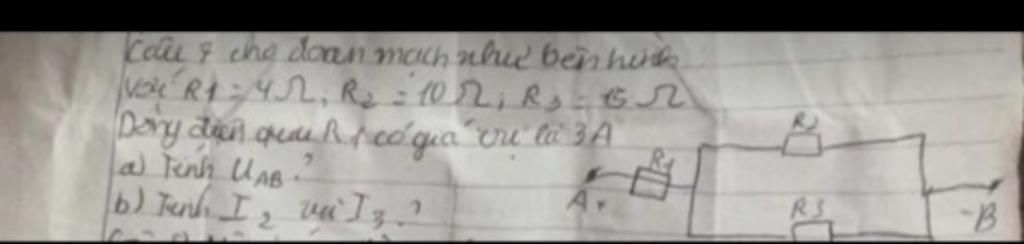 Câu 8 cho đoạn mạch như bên hình
với R1 = 4 Ω; R2 = 10 Ω; R3 = 15 Ω
Dòng điện qua R1 có giá trị là 3A
a) Tính UAB ?
b) Tính I2 và I3 ?
R2
R1
A+
R3
-B